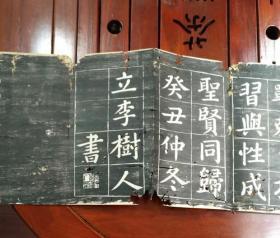 習與性成
聖賢同歸
癸丑仲冬
立李樹人
書